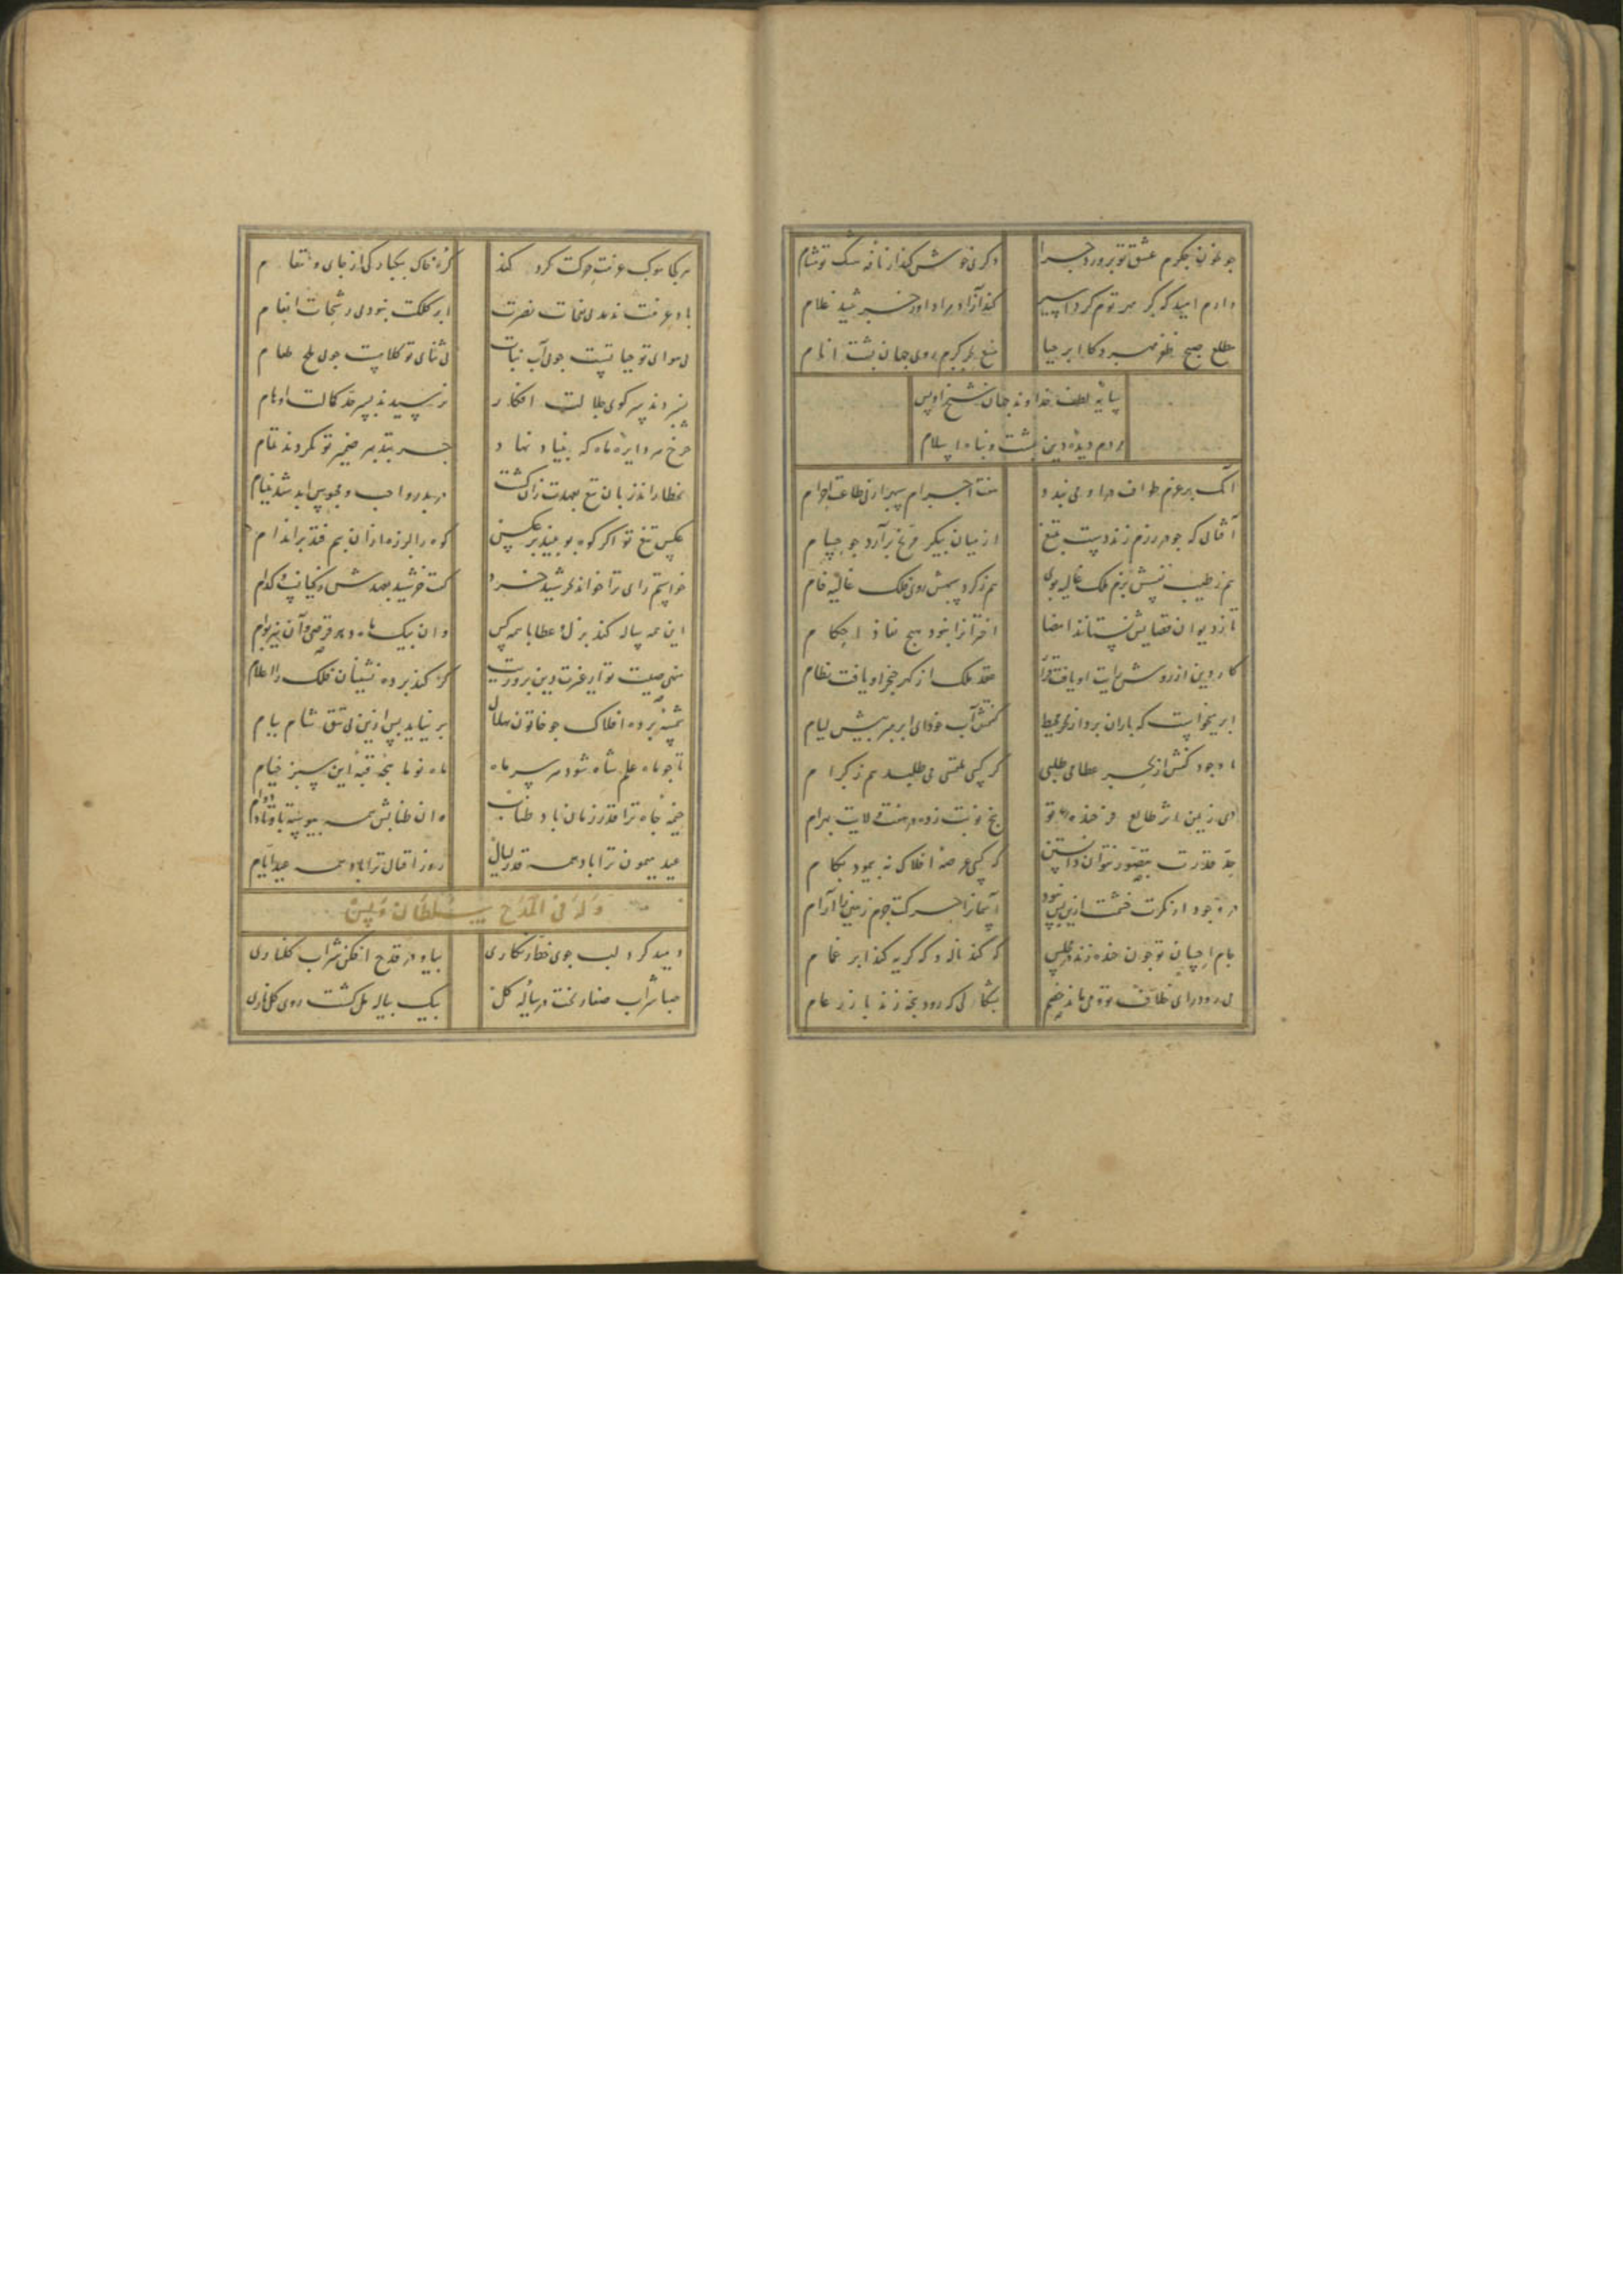 چو خون جگرم عشق تو پرورد چرا دگری خوش کند از نافه مشک تو مشام
دارم امید که گر مهر توم کرد اسیر کند آزاد مرا داور خورشید غلام
مطلع صبح ظفر مهر وکا ابر حیا منبع بحر کرم روی جهان پشت انام
سایه لطف خداوند جهان شیخ اویس
مردم دیده دین پشت و پناه اسلام
آنک بر عزم طواف در او می‌بندد هفت اجرام سپهر از پی طاعت احرام
آفتابی که چو در رزم زند دست بتیغ از میان پیکر مریخ برآرد چو حسام
هم ز طیب نفسش بزم ملک غالیه بوی هم ز گرد سپهش روی فلک غالیه فام
تا ز دیوان قضایش نستاند امضا اختران را نبود هیچ نفاذ احکام
کار دین از روش رایت او یافت قرار عقد ملک از گهر خنجر او یافت نظام
ابر میخواست که باران برد از بحر محیط گفتمش آب خود ای ابر مبر پیش لیام
با وجود کفش از بحر عطا می طلبی گر کسی ملتمسی می طلبد هم ز کرام
ای زمین اثر طالع فرخنده تو پنج نوبت زده در هفت ولایت بهرام
حد قدرت بتصور نتوان دانستن که کسی عرصه افلاک نپیمود بگام
در وجود ار نگرت خشمت ازین پس نبود آسمان را حرکت جرم زمین را آرام
بام احسان تو چون خنده زند بر مفلس که کند ناله و گه گریه کند ابر غمام
هر کجا موکب عزمت حرکت کرد کند کره خاک بیکبارگی از جای قیام
باد عزمت ندمد بی نفحات نصرت ابر کلکت نبود بی رشحات انعام
بی هوای تو حیاتیست چو بی آب نبات بی ثنای تو کلامیست چو بی ملح طعام
نبردند بسر کوی جلالت افکار نرسیدند بسر حد کمالت اوهام
چرخ در دایره ماه که بنیاد نهاد جز بتدبیر ضمیر تو نکردند تمام
عکس تیغ تو اگر کوه ببیند بر کوه را لرزه از آن بیم فتد بر اندام
خواستم رای ترا خواند خورشید خرد گفت خورشید بعهدش ز کیانست و کدام
این همه ساله کند بذل و عطا با همه کس وان بیک ماه دهد قرصی و آن نیز بوام
منهی صیت تو از غرفه دین پرورت گر کند پرده نشینان فلک را اعلام
شمسه پرده افلاک چو خاتون هلال بر نیاید پس ازین بی تتق شام ببام
تا چو ماه علم شاه شود بر سر ماه ماه نو ماهچه قبه این سبز خیام
خیمه جاه ترا قدر زمان باد طناب وان طنابش همه پیوسته باوتاد دوام
عید میمون ترا باد همه قدر لیال روز اقبال ترا باد همه عید ایام
وله فی المدح سلطان اویس
دمید گرد لب جوی خط زنگاری بیا و در قدح افکن شراب گلناری
صبا شراب صفا ریخت در پیاله گل بیک پیاله مل گشت روی گل ناری